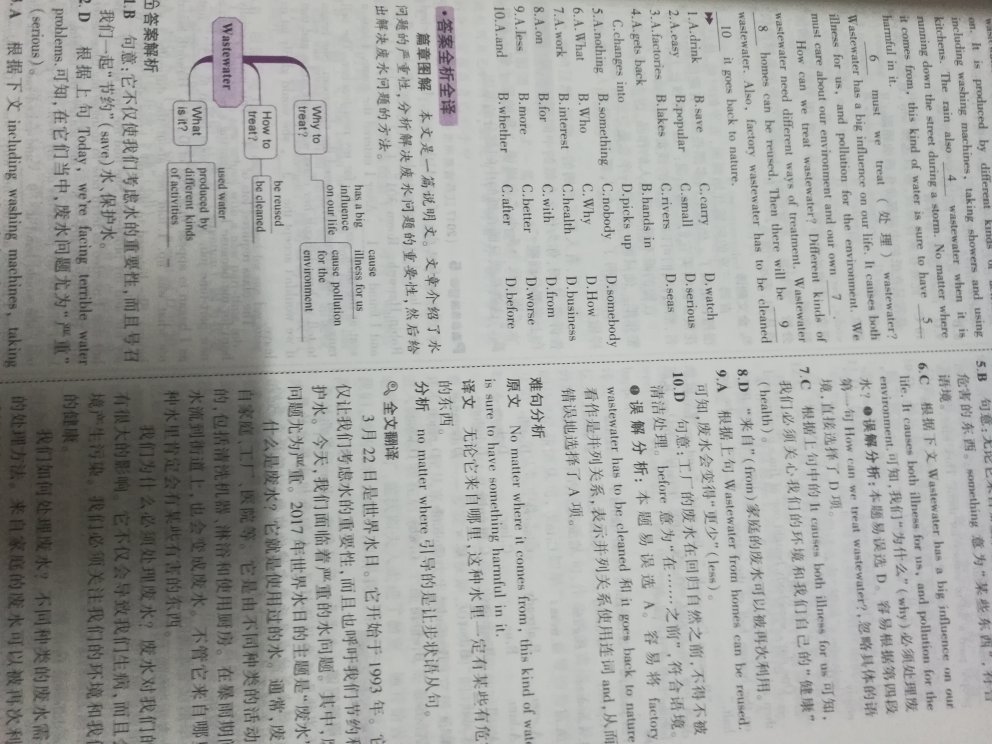 on. It is produced by different kinds of
including washing machines, taking showers and using
kitchens. The rain also 4 wastewater when it is
running down the street during a storm. No matter where
it comes from, this kind of water is sure to have 5
harmful in it.
6 must we treat (处理) wastewater?
Wastewater has a big influence on our life. It causes both
illness for us, and pollution for the environment. We
must care about our environment and our own 7 .
How can we treat wastewater? Different kinds of
wastewater need different ways of treatment. Wastewater
8 homes can be reused. Then there will be 9
wastewater. Also, factory wastewater has to be cleaned
10 it goes back to nature.
1.A.drink B.save C.carry D.watch
2.A.easy B.popular C.small D.serious
3.A.factories B.lakes C.rivers D.seas
4.A.gets back B.hands in
C.changes into D.picks up
5.A.nothing B.something C.nobody D.somebody
6.A.What B.Who C.Why D.How
7.A.work B.interest C.health D.business
8.A.on B.for C.with D.from
9.A.less B.more C.better D.worse
10.A.and B.whether C.after D.before
·答案全析全译
篇章图解 本文是一篇说明文。文章介绍了水
问题的严重性,分析解决废水问题的重要性,然后给
出解决废水问题的方法。
Wastewater
Why to treat?
has a big influence on our life
cause illness for us
cause pollution for the environment
How to treat?
be reused
be cleaned
What is it?
used water
produced by different kinds of activities
答案解析
1.B 句意:它不仅使我们考虑水的重要性,而且号召
我们一起“节约”(save)水、保护水。
2.D 根据上句 Today, we're facing terrible water
problems.可知,在它们当中,废水问题尤为“严重”
(serious)。
3.A 根据下文 including washing machines, taking
5.B 句意:无论它来自哪里
危害的东西。something 意为“某些东西”,符合
语境。
6.C 根据下文 Wastewater has a big influence on our
life. It causes both illness for us, and pollution for the
environment.可知,我们“为什么”(why)必须处理废
水?误解分析:本题易误选 D。容易根据第四段
第一句 How can we treat wastewater?,忽略具体的语
境,直接选择了 D 项。
7.C 根据上句中的 It causes both illness for us 可知,
我们必须关心我们的环境和我们自己的“健康”
(health)。
8.D “来自”(from)家庭的废水可以被再次利用。
9.A 根据上句 Wastewater from homes can be reused.
可知,废水会变得“更少”(less)。
10.D 句意:工厂的废水在回归自然之前,不得不被
清洁处理。before 意为“在……之前”,符合语境。
误解分析:本题易误选 A。容易将 factory
wastewater has to be cleaned 和 it goes back to nature
看作是并列关系,表示并列关系使用连词 and,从而
错误地选择了 A 项。
难句分析
原文 No matter where it comes from, this kind of wate
is sure to have something harmful in it.
译文 无论它来自哪里,这种水里一定有某些有危
的东西。
分析 no matter where 引导的是让步状语从句。
全文翻译
3 月 22 日是世界水日。它开始于 1993 年。它
仅让我们考虑水的重要性,而且也呼吁我们节约和
护水。今天,我们面临着严重的水问题。其中,
问题尤为严重。2017 年世界水日的主题是“废水”
什么是废水?它就是使用过的水。通常,废
自家庭、工厂、医院等。它是由不同种类的活动
的,包括清洗机器、淋浴和使用厨房。在暴雨期间
水滴到街道上,也会变成废水。不管它来自哪里
种水里肯定会有某些有害的东西。
我们为什么必须处理废水?废水对我们的
有很大的影响。它不仅会导致我们生病,而且
境产生污染。我们必须关注我们的环境和我们
的健康。
我们如何处理废水?不同种类的废水需
的处理方法。来自家庭的废水可以被再次利